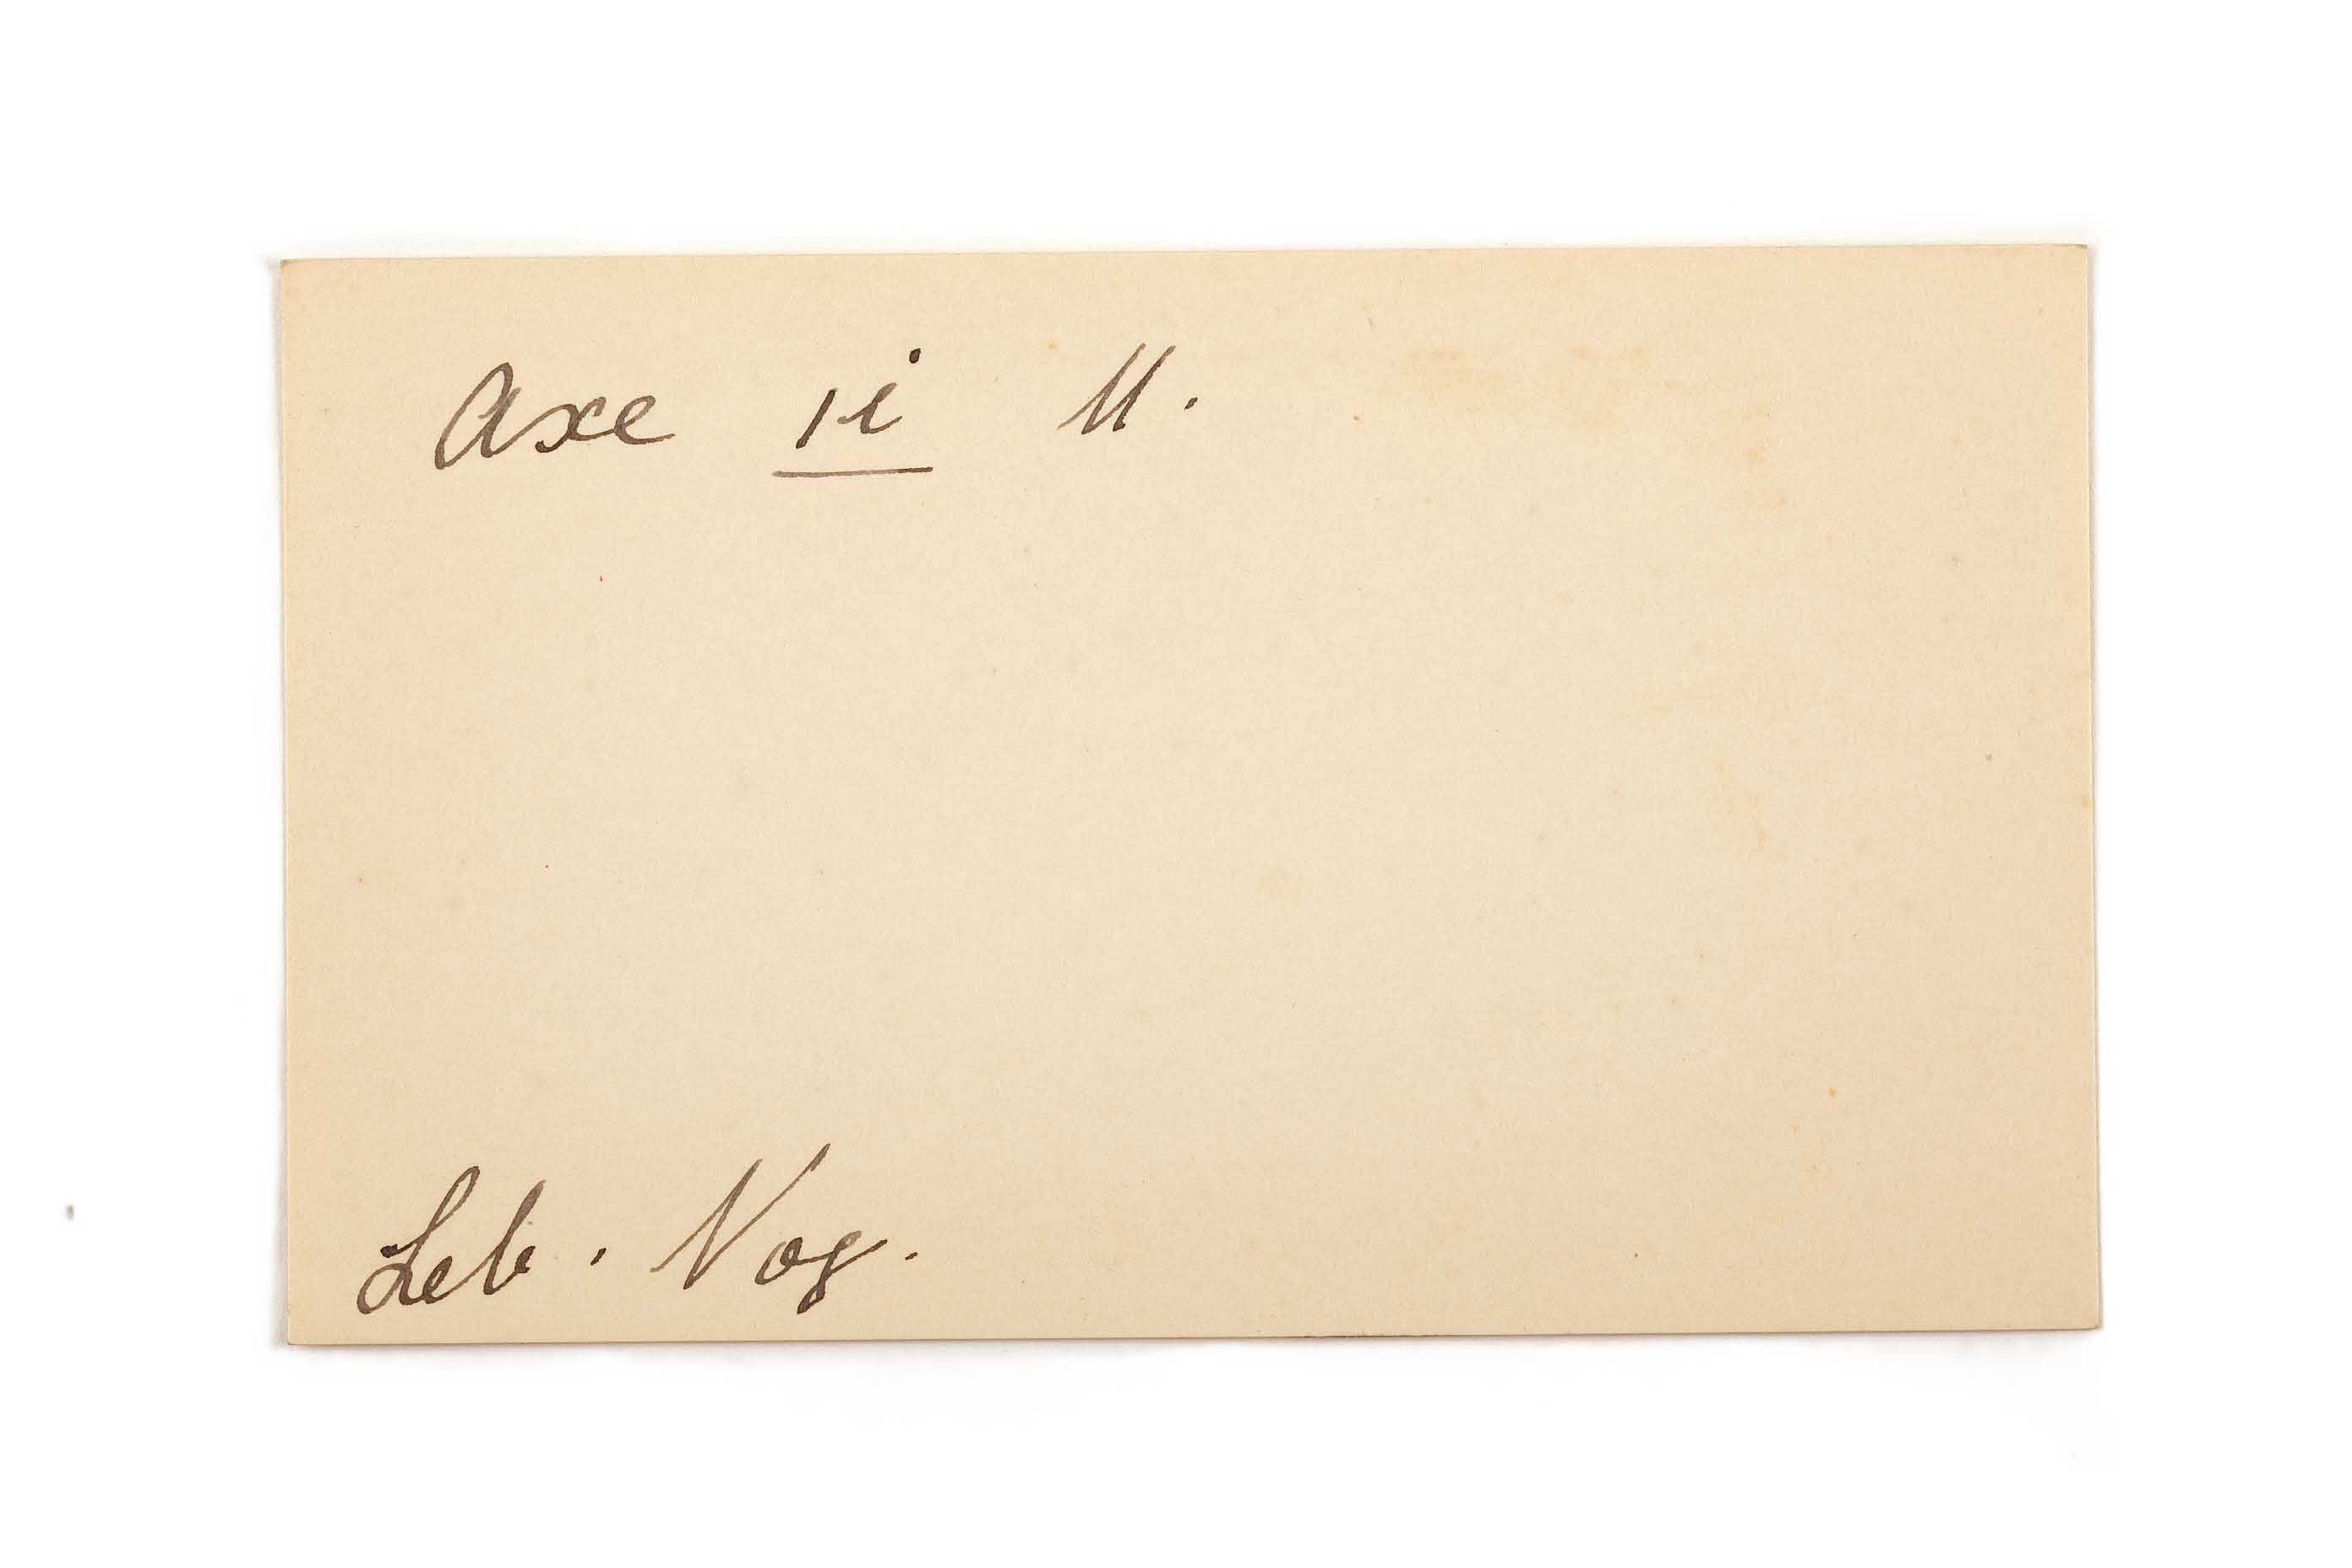 Axe ri U.
Leb. Nog.